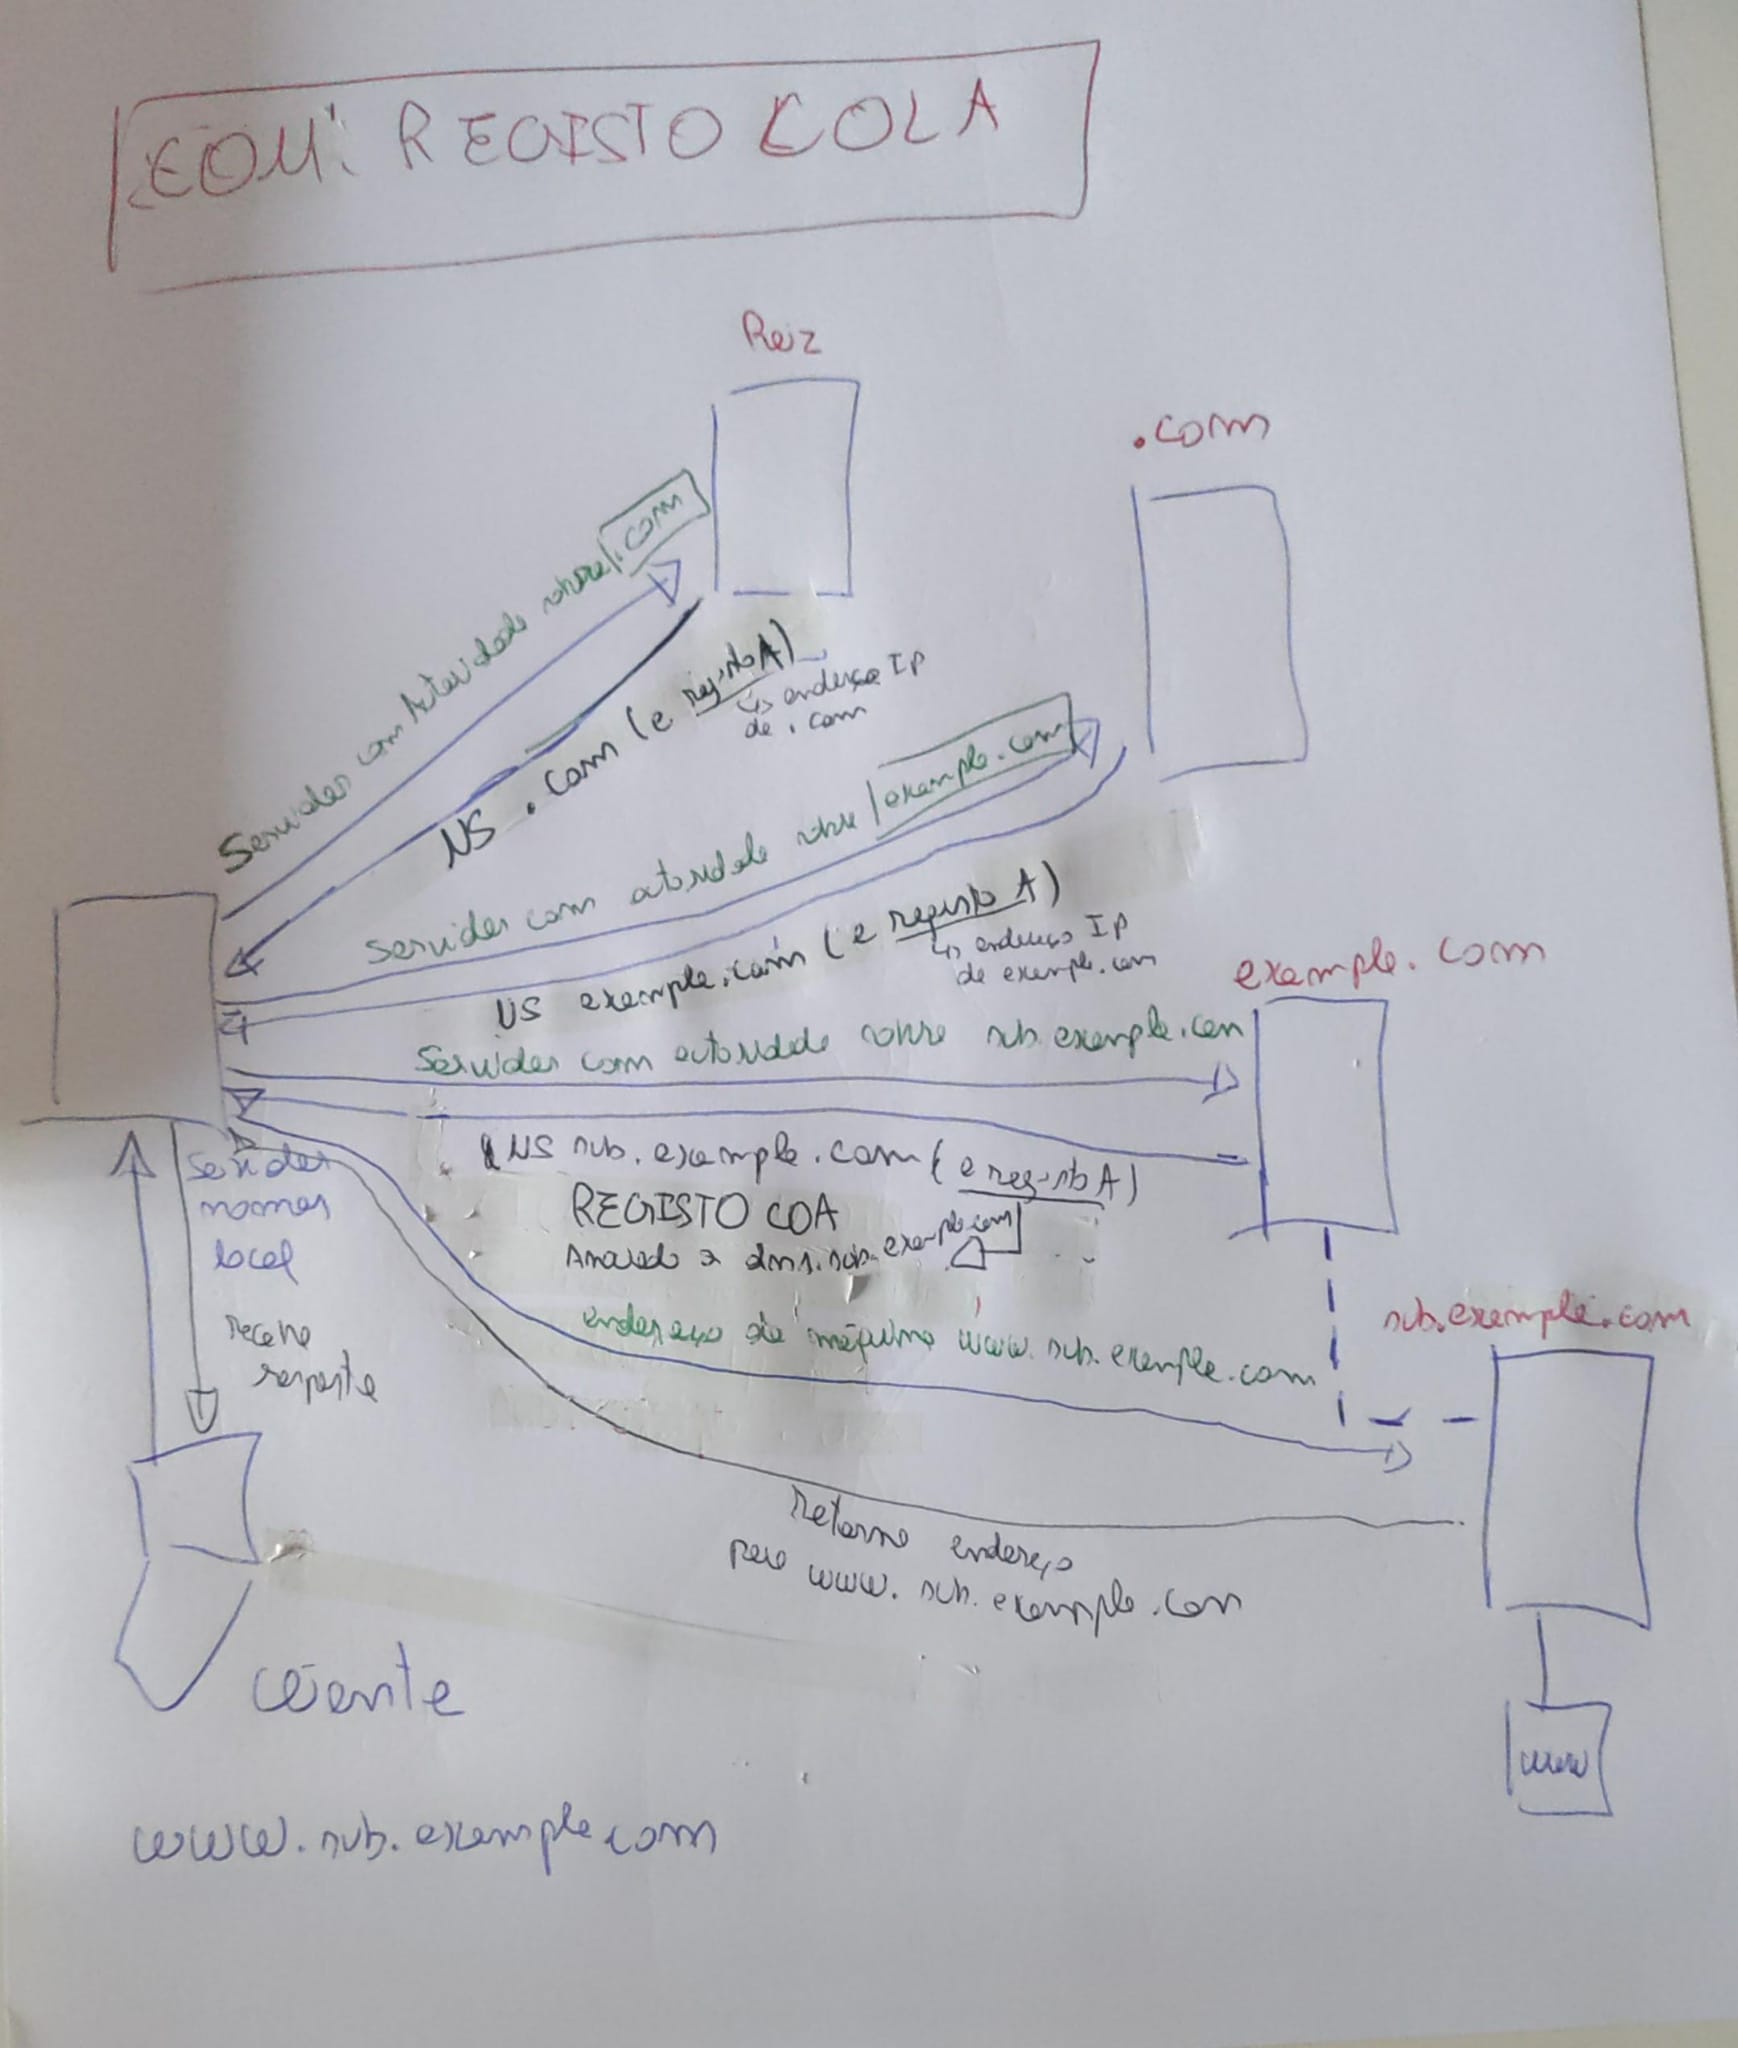 COM: REGISTO COLA
Raiz
.com
Servidor com Autoridade sobre .com
NS .com (e registo A)
↳ endereço IP
de .com
Servidor com autoridade sobre example.com
NS example.com (e registo A)
↳ endereço IP
de example.com
example.com
Servidor com autoridade sobre sub.example.com
NS sub.example.com (e registo A)
REGISTO COA
Associado a dns.sub.example.com
Servidor
nomes
local
recebe
resposta
endereço da máquina www.sub.example.com
sub.example.com
Retorna endereço
para www.sub.example.com
www
Cliente
www.sub.example.com